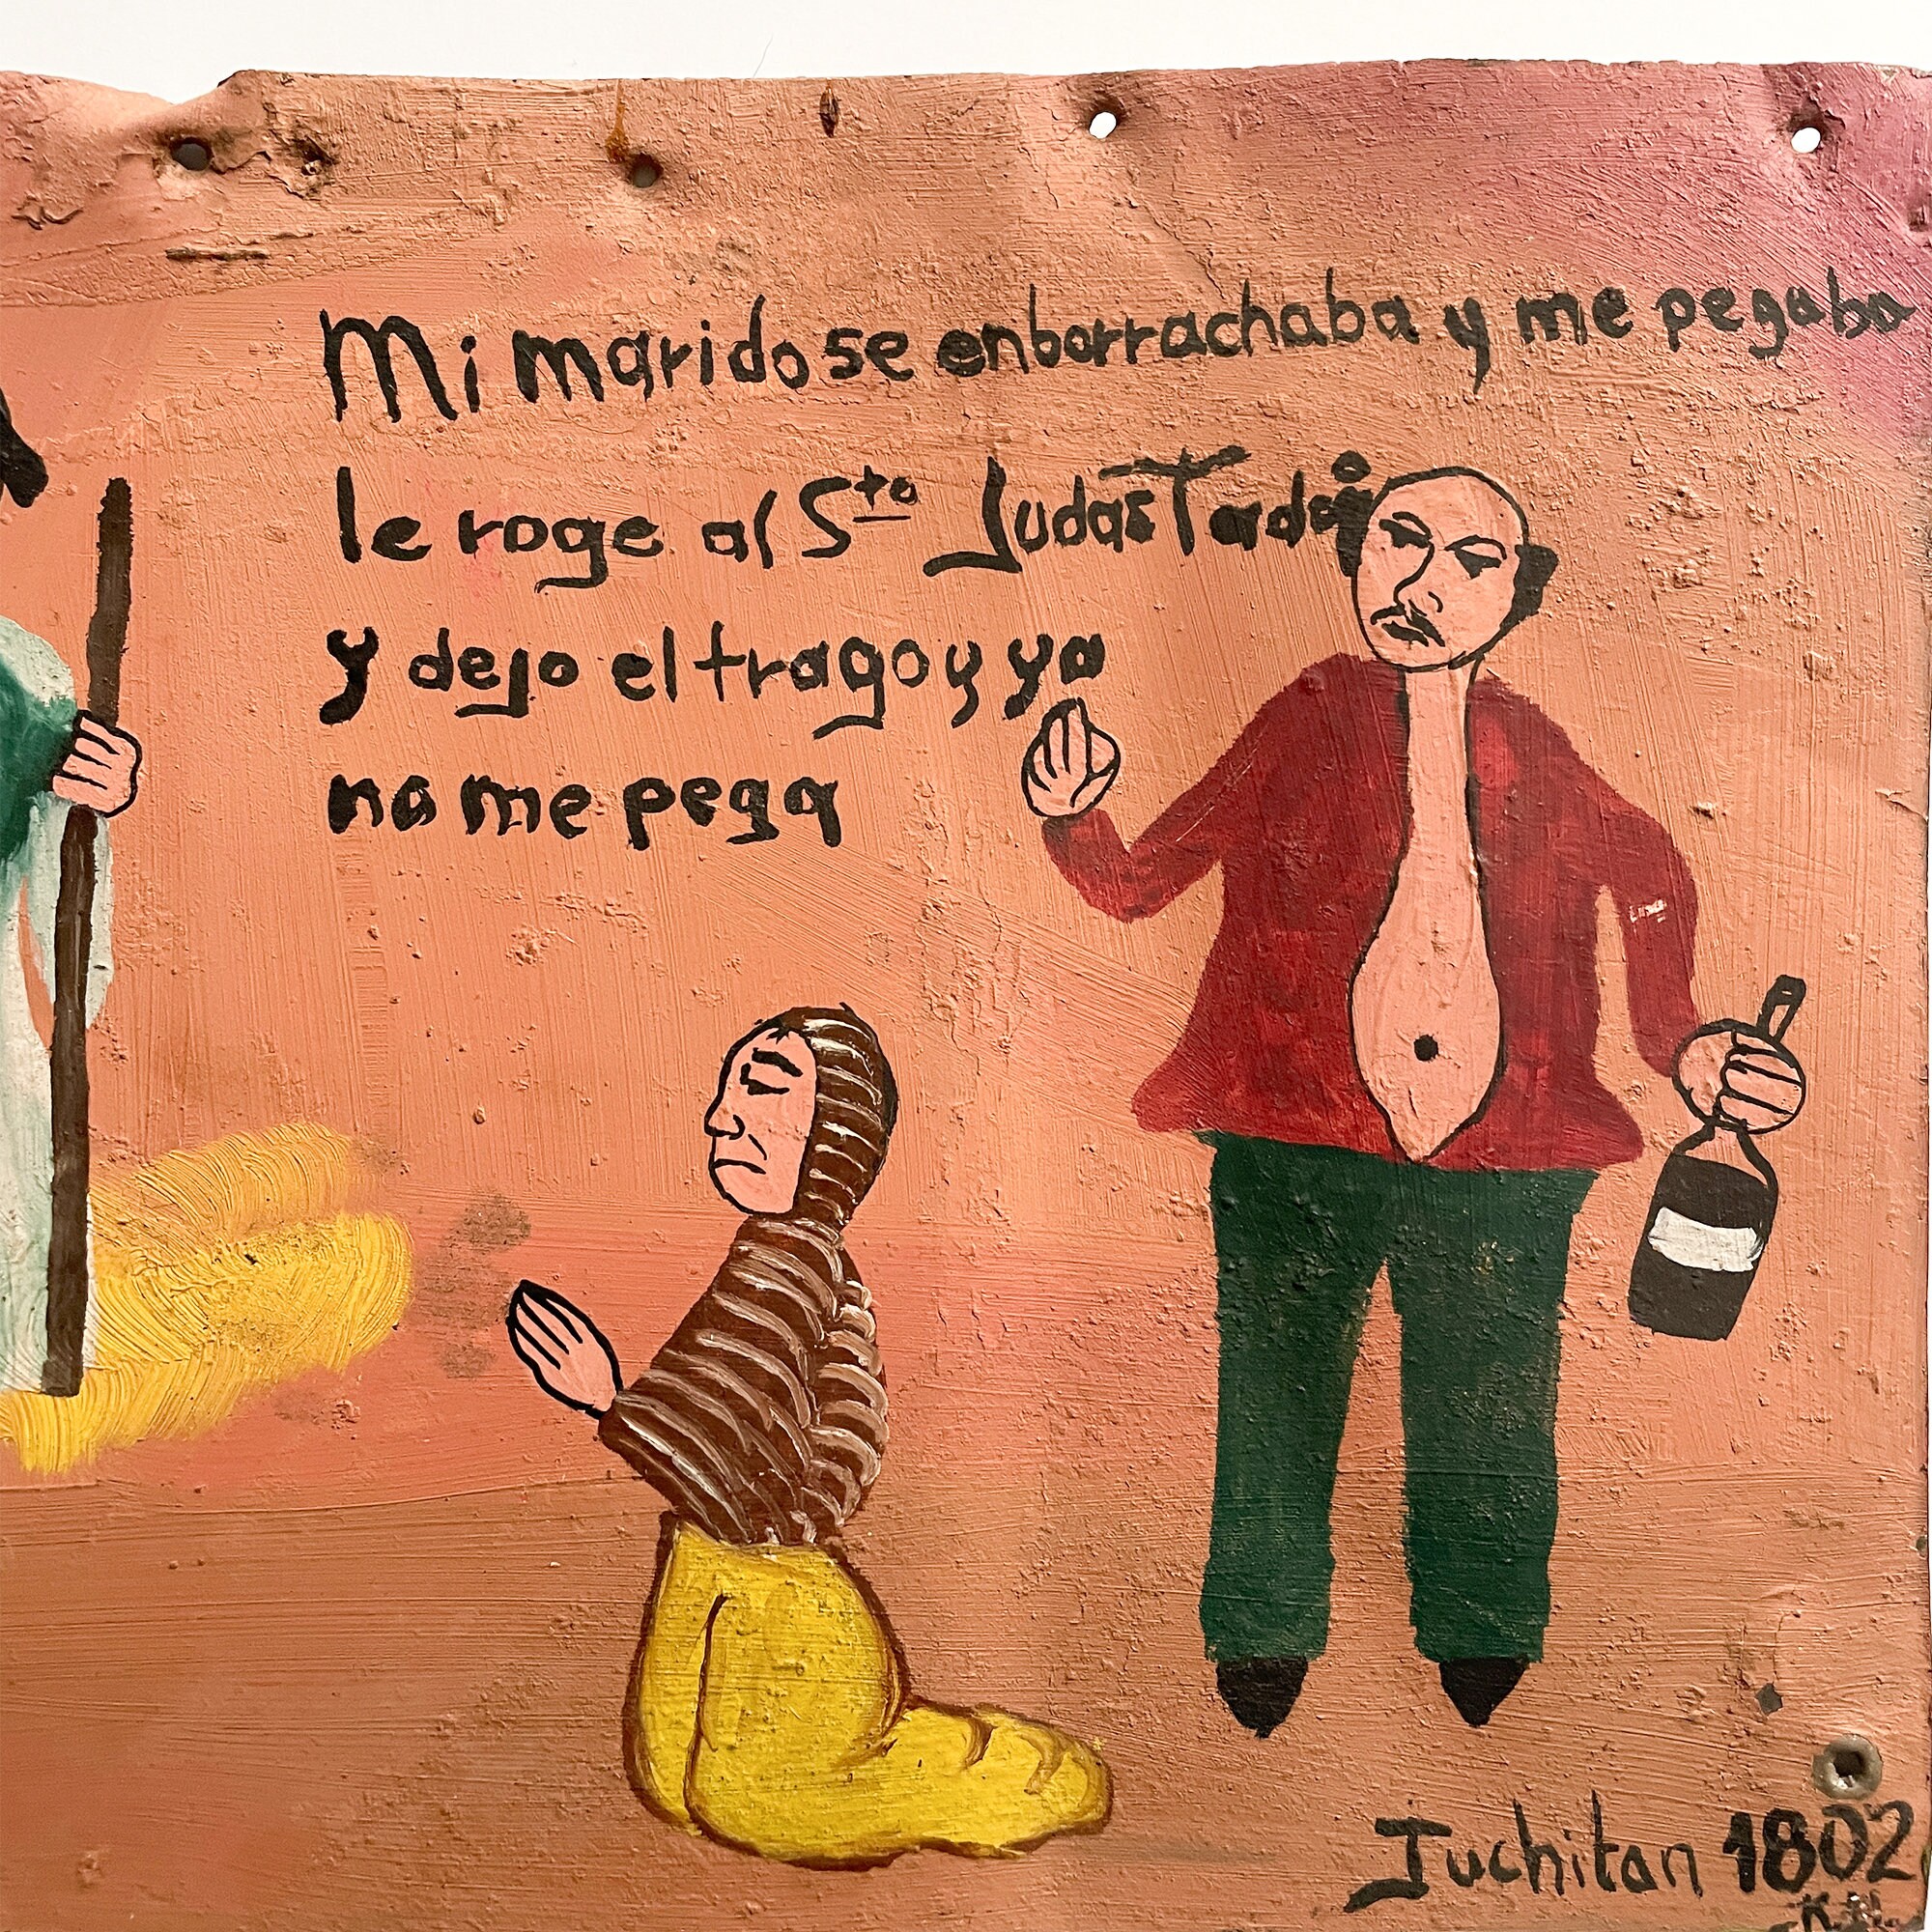 Mi marido se enborrachaba y me pegaba
le roge al Sto Judas Tadeo
y dejo el trago y ya
no me pega
Juchitan 1802